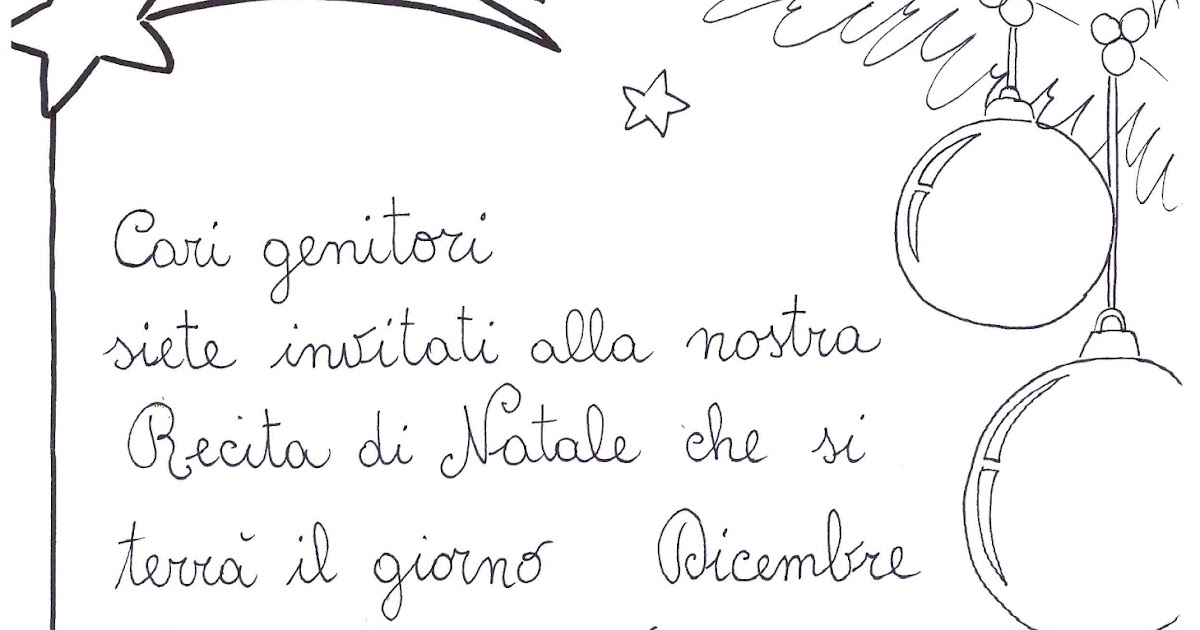 Cari genitori
siete invitati alla nostra
Recita di Natale che si
terrà il giorno Dicembre